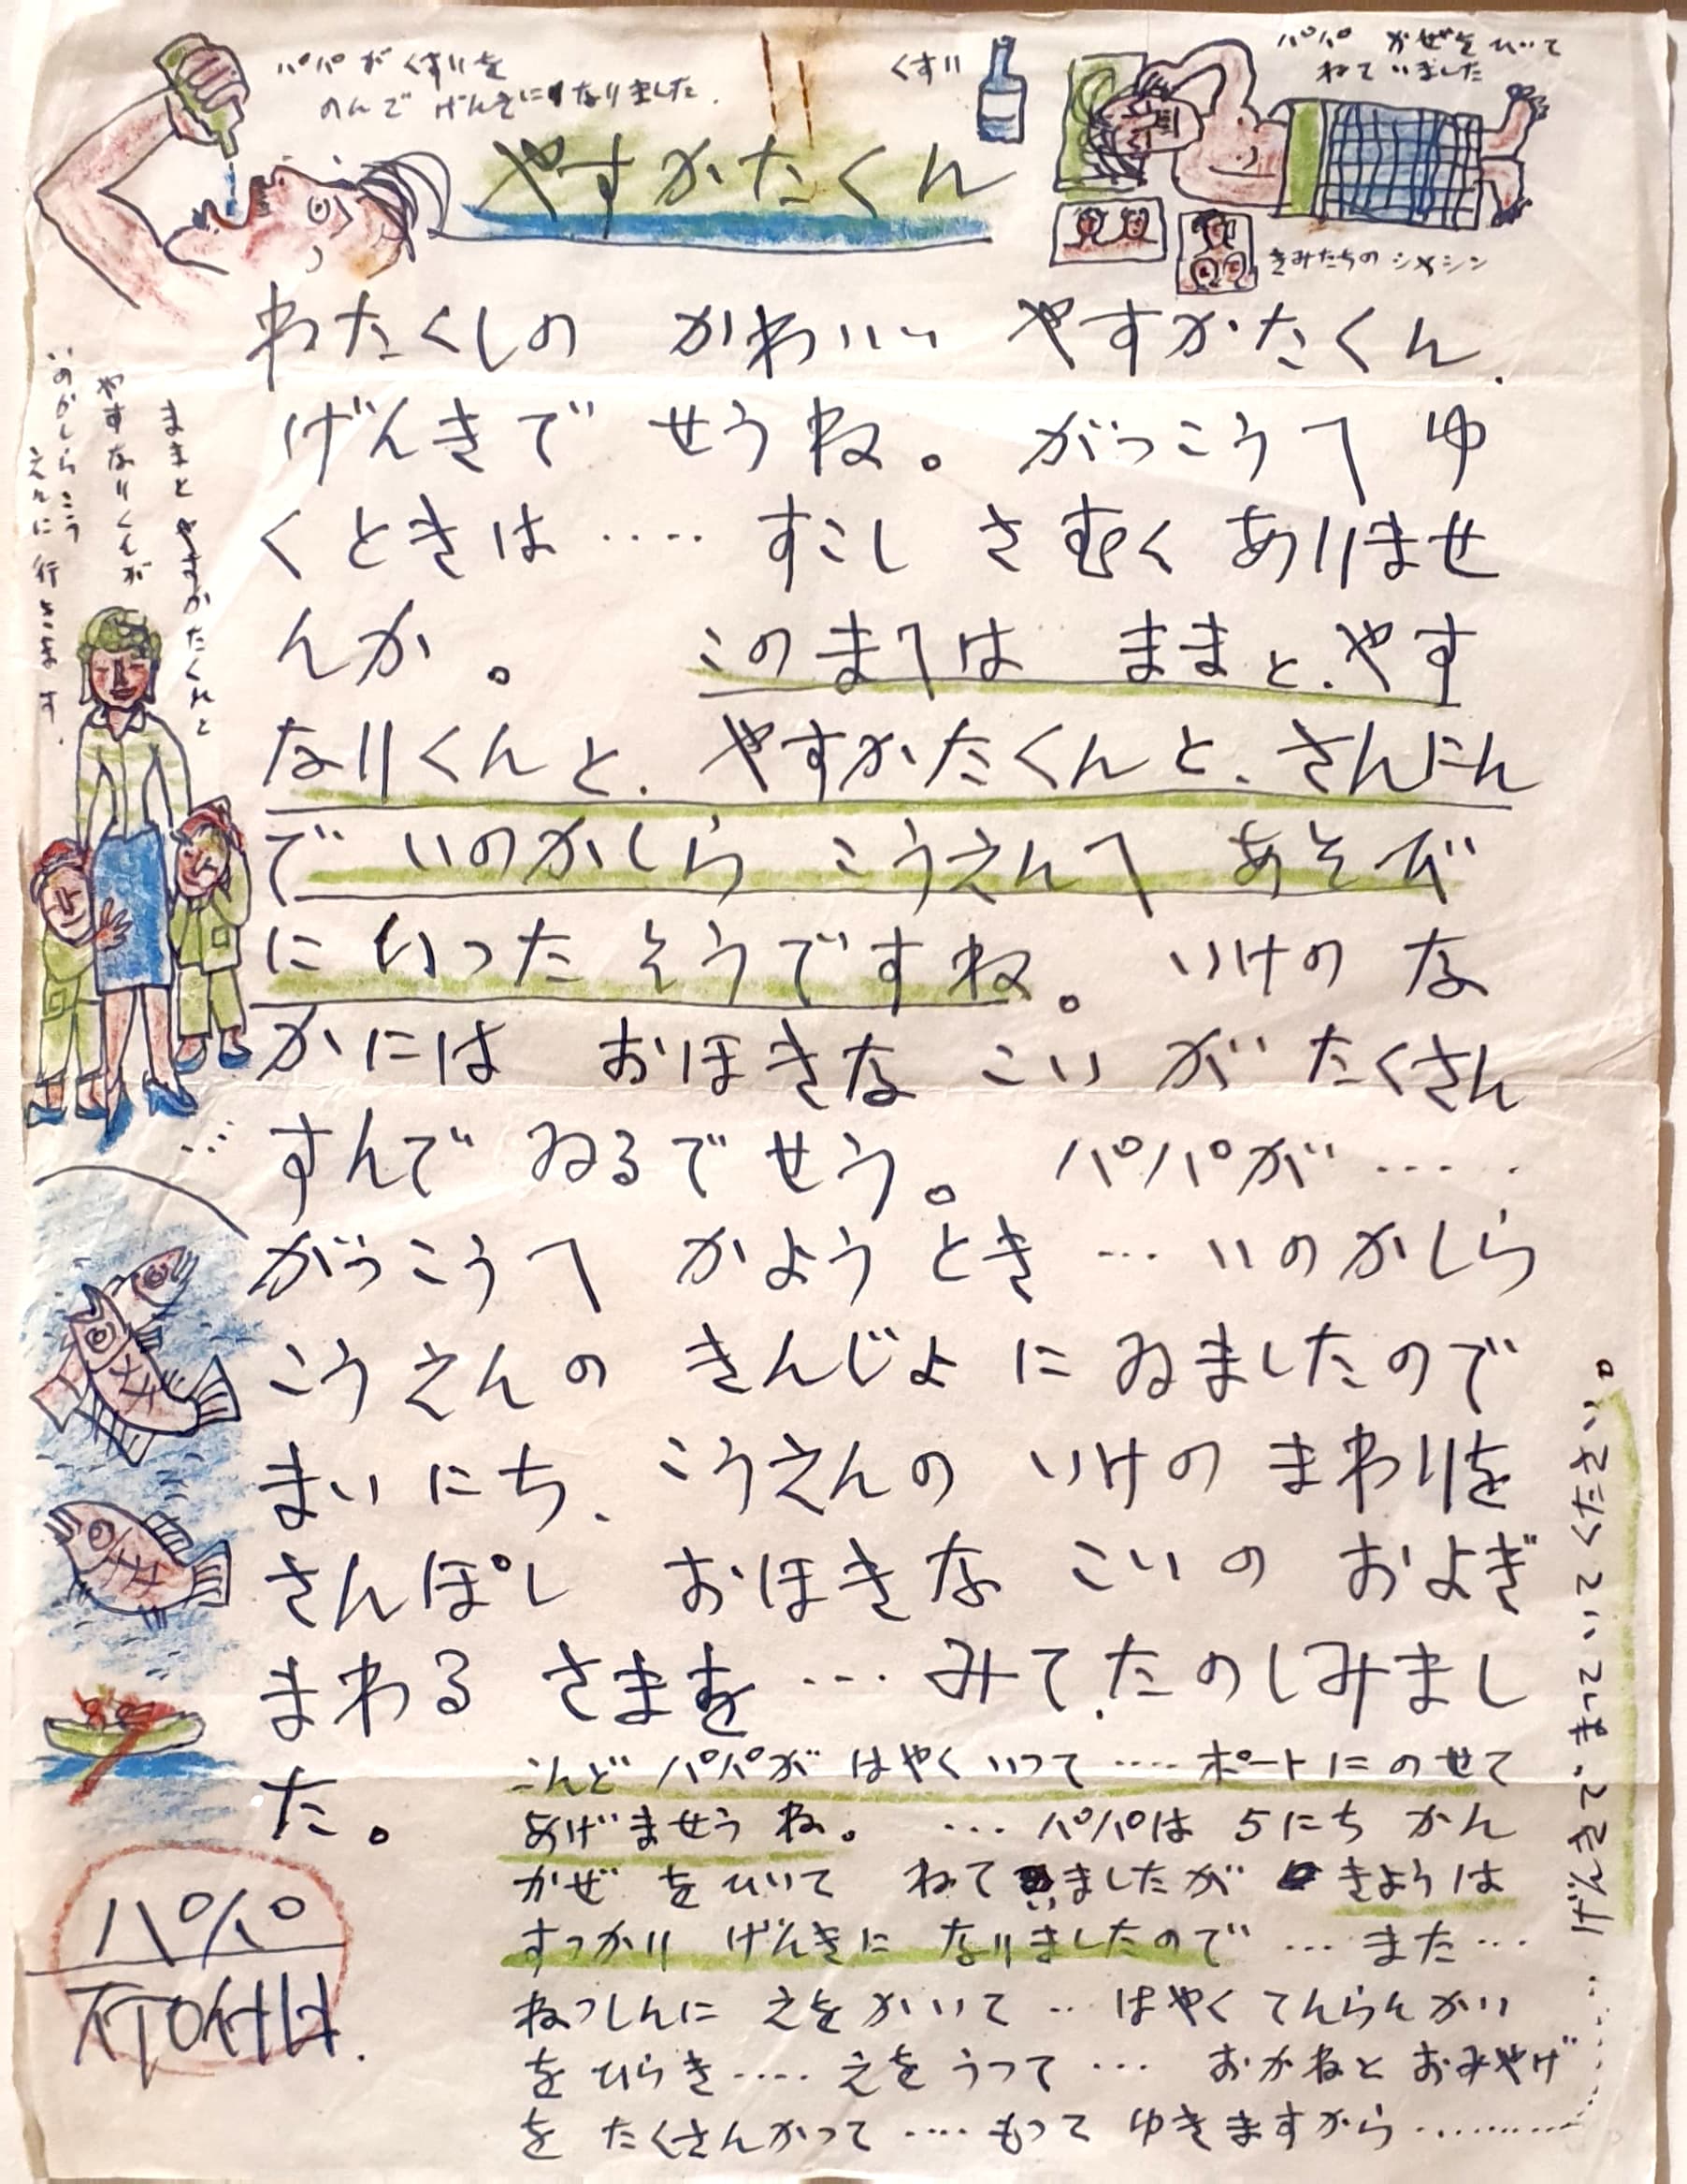 パパ が くすりを
のんで げんきに なりました.
くすり
パパ かぜを ひいて
ねて いました
きみたちの シャシン
やすかたくん
ままと やすかたくんと
やすなりくんが
いのかしらこう
えんに 行きます.
わたくしの かわいい やすかたくん.
げんきで せうね。 がっこうへ ゆ
くときは ‥‥ すこし さむく ありませ
んか。 このまへは ままと.やす
なりくんと. やすかたくんと. さんにん
で いのかしら こうえんへ あそび
に いった そうですね。 いけの な
かには おほきな こい が たくさん
すんで ゐるで せう。 パパが ‥‥‥
がっこうへ かよう とき … いのかしら
こうえんの きんじよ に ゐましたので
まいにち、 こうえんの いけの まわりを
さんぽし おほきな こいの およぎ
まわる さまを … みて.たのしみまし
た。
こんど パパが はやく いって ‥‥ ボートに のせて
あげませう ね。 … パパは 5にち かん
かぜ を ひいて ねて いましたが きようは
すっかり げんきに なりましたので … また …
ねっしんに えを かいて ‥ はやく てんらんかい
を ひらき ‥‥ えを うって … おかねと おみやげ
を たくさんかって ‥‥ もって ゆきますから ‥‥‥‥‥
げんきで.まっていてください。
パパ